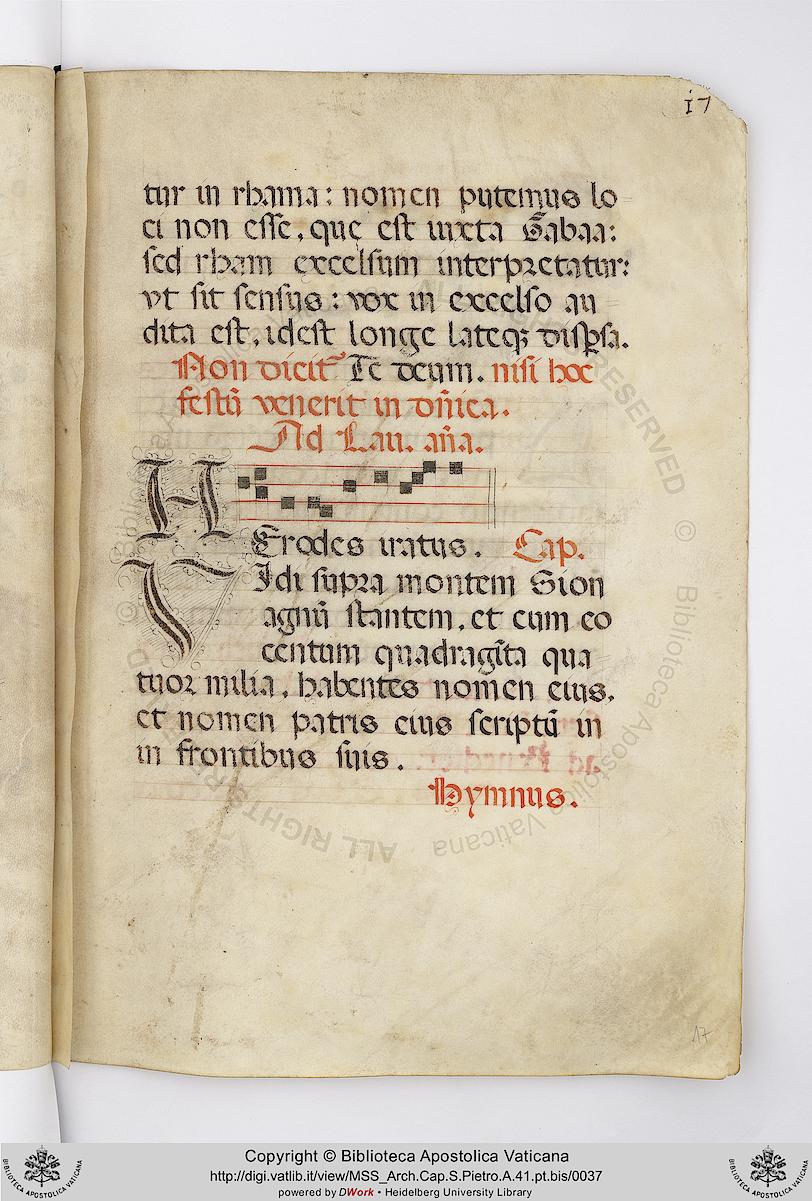 17
tur in rhama: nomen putemus lo
ci non esse, que est iuxta Gabaa:
sed rham excelsum interpretatur:
vt sit sensus: vox in excelso au
dita est, idest longe lateq; dispsa.
Non dicit Te deum. nisi hoc
festū venerit in dñica.
Ad Lau. aña.
HErodes iratus. Cap.
VIdi supra montem Sion
agnū stantem, et cum eo
centum quadragīta qua
tuor milia, habentes nomen eius,
et nomen patris eius scriptū in
in frontibus suis.
Hymnus.
17
Copyright © Biblioteca Apostolica Vaticana
http://digi.vatlib.it/view/MSS_Arch.Cap.S.Pietro.A.41.pt.bis/0037
powered by DWork • Heidelberg University Library
BIBLIOTECA APOSTOLICA VATICANA
BIBLIOTECA APOSTOLICA VATICANA